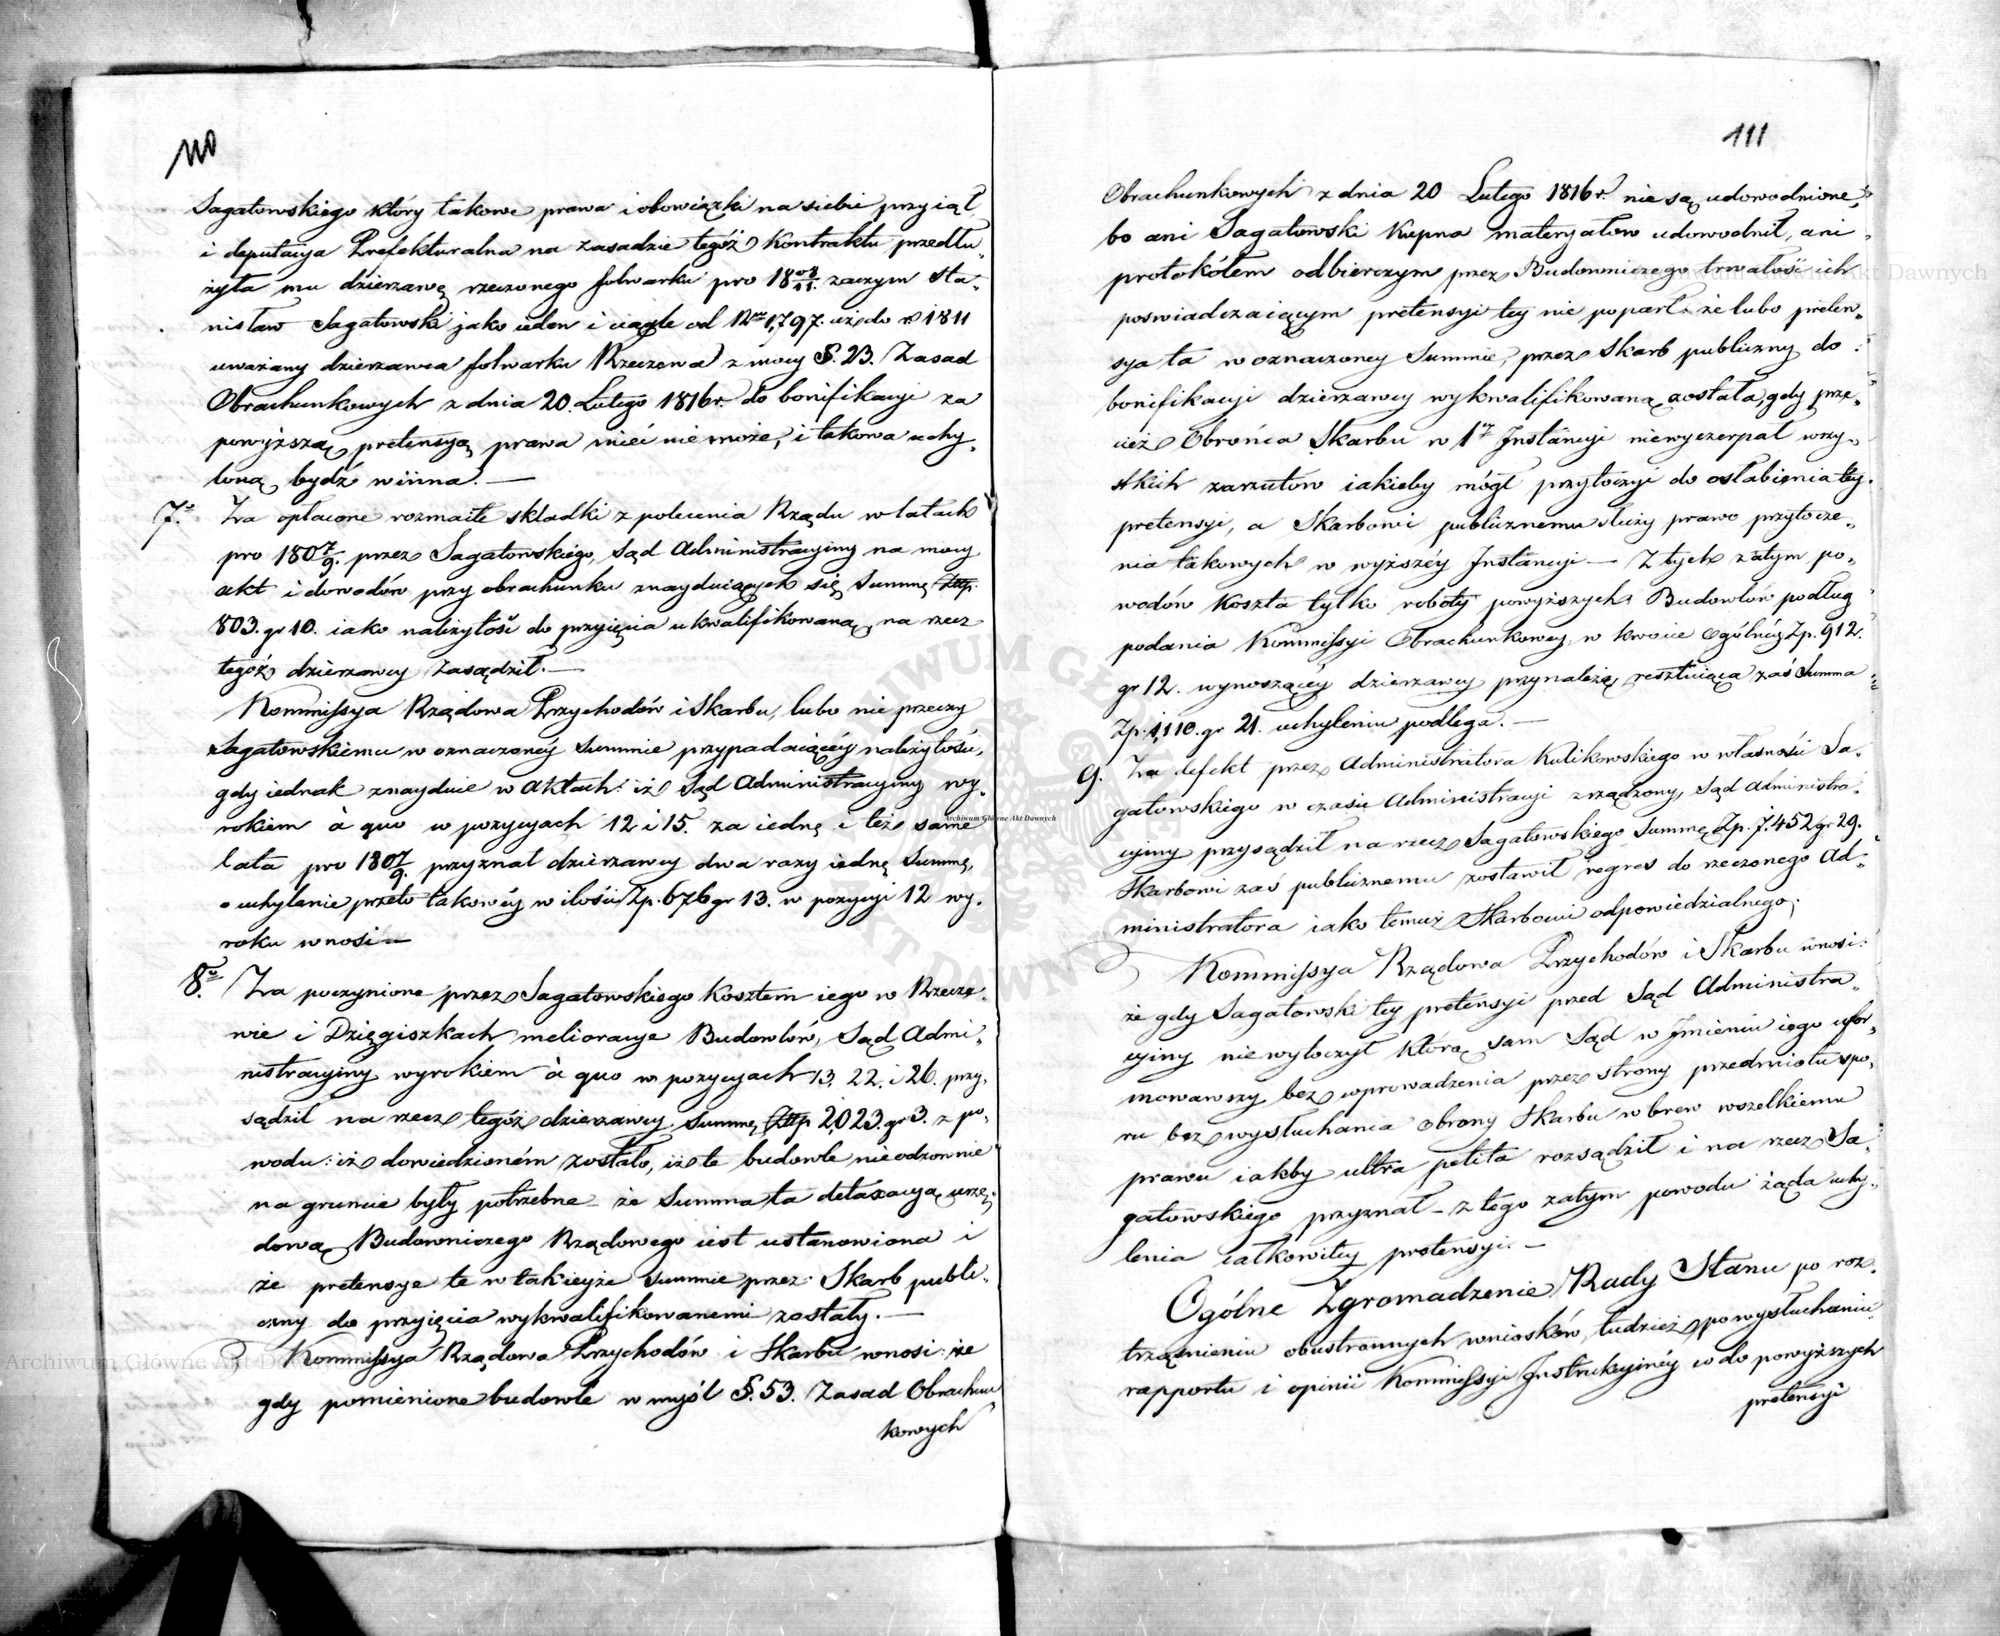 110
Sagatowskiego który takowe prawa i obowiązki na siebie przyiął
i deputacya Prefekturalna na zasadzie tegóż Kontraktu przedłu„
żyła mu dzierzawę rzeczonego folwarku pro 18 08/11. zaczym Sta„
nisław Sagatowski jako ieden i ciągle od 1797. iż do r 1811
uważany dzierzawca folwarku Rzeczewa z mocy §. 23. Zasad
Obrachunkowych z dnia 20. Lutego 1816r. do bonifikacyi za
powyższą pretensyą prawa mieć nie może, i takowa uchy„
loną bydź winna. —
7. Za opłacone rozmaite składki z polecenia Rządu w latach
pro 180 7/9. przez Sagatowskiégo, Sąd Administracyiny na mocy
akt i dowodów przy obrachunku znayduiących się Summę Złtp.
803. gr 10. iako należytość do przyięcia ukwalifikowaną, na rzecz
tegóż dzierzawcy zasądził. —
Kommissya Rządowa Przychodów i Skarbu, lubo nie przeczy
Sagatowskiemu w oznaczonéy Summie przypadaiącéy należytości,
gdy iednak znayduie w aktach: iż Sąd Administracyiny wy„
rokiem à quo w pozycyach 12 i 15. za iednę i też same
lata pro 180 7/9. przyznał dzierzawcy dwa razy iednę Summę,
o uchylenie przeto takowéy w ilości Zp. 676 gr 13. w pozycyi 12 wy„
roku wnosi —
8. Za poczynione przez Sagatowskiego Kosztem iego w Rzecze„
wie i Dzięgiszkach melioracye Budowlów, Sąd Admi„
nistracyiny wyrokiem à quo w pozycyach 13. 22. i 26. przy„
sądził na rzecz tegóż dzierzawcy Summę Złtp 2,023. gr 3. z po„
wodu: iż dowiedzioném zostało, iż te budowle nieodzownie
na gruncie były potrzebne – że Summa ta detaxacyą urzę„
dową Budowniczego Rządowego iest ustanowiona i
że pretensye te w takieyże Summie przez Skarb publi„
czny do przyięcia wykwalifikowanemi zostały. —
Kommissya Rządowa Przychodów i Skarbu wnosi: że
gdy pomienione budowle w myśl §. 53. Zasad Obrachun„
kowych
111
Obrachunkowych z dnia 20 Lutego 1816r. nie są udowodnione,
bo ani Sagatowski Kupna materyałów udowodnił, ani
protokółem odbierczym przez Budowniczego trwałość ich
poswiadczaiącym pretensyi tey nie poparł. że lubo preten„
sya ta w oznaczoney Summie, przez Skarb publiczny do
bonifikacyi dzierzawcy wykwalifikowaną została, gdy prze„
cież Obrońca Skarbu w 1éy Instancyi niewyczerpał wszy„
stkich zarzutów iakieby mógł przytoczyć do osłabienia tey
pretensyi, a Skarbowi publicznemu służy prawo przytocze„
nia takowych w wyższéy Instancyi — Z tych zatym po„
wodów Koszta tylko roboty powyższych Budowlów podług
podania Kommissyi Obrachunkowey w kwocie ogólnéy Zp. 912.
gr 12. wynoszącéy dzierzawcy przynależą, resztuiąca zaś Summa
Zp. 1,110. gr 21. uchyleniu podlega. —
9. Za defekt przez Administratora Kulikowskiego w własności Sa„
gatowskiego w czasie Administracyi zrządzony, Sąd Administra„
cyiny przysądził na rzecz Sagatowskiego Summę Zp. 7,452 gr 29.
Skarbowi zaś publicznemu zostawił regres do rzeczonego Ad„
ministratora iako temuż Skarbowi odpowiedzialnego.
Kommissya Rządowa Przychodów i Skarbu wnosi:
że gdy Sagatowski tey pretensyi przed Sąd Administra„
cyiny niewytoczył którą sam Sąd w Imieniu iego ufor„
mowawszy bez wprowadzenia przez strony przedmiotu spo„
ru bez wysłuchania obrony Skarbu w brew wszelkiemu
prawu iakby ultra petita rozsądził i na rzecz Sa„
gatowskiego przyznał – z tego zatym powodu żąda uchy„
lenia całkowitey pretensyi. —
Ogólne Zgromadzenie Rady Stanu po roz„
trząśnieniu obustronnych wniosków, tudzież po wysłuchaniu
rapportu i opinii Kommissyi Instrukcyinéy co do powyższych
pretensyi
Archiwum Główne Akt Dawnych